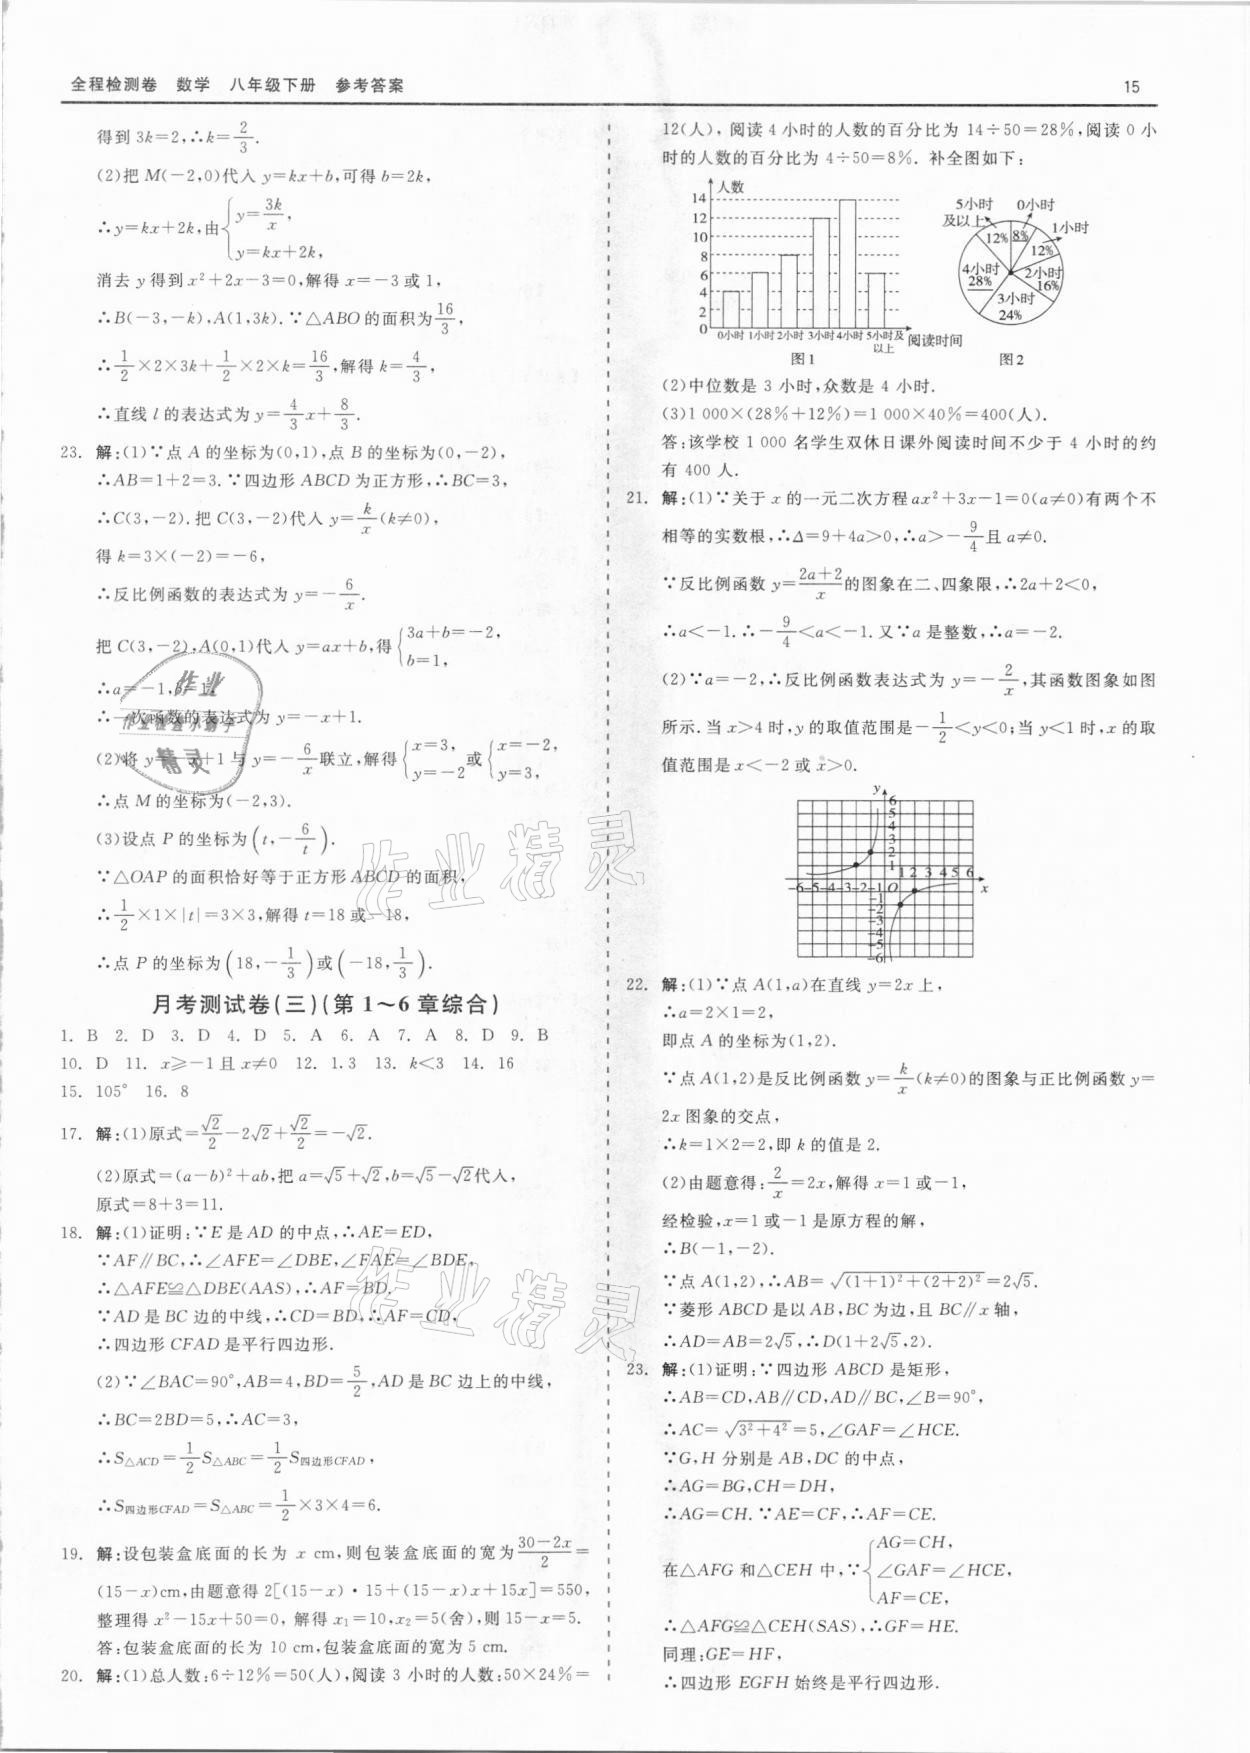 全程检测卷 数学 八年级下册 参考答案
15
得到 3k=2,∴k=2/3.
(2)把 M(-2,0)代入 y=kx+b,可得 b=2k,
∴y=kx+2k,由{y=3k/x, y=kx+2k,
消去 y 得到 x²+2x-3=0,解得 x=-3 或 1,
∴B(-3,-k),A(1,3k).∵△ABO 的面积为16/3,
∴1/2×2×3k+1/2×2×k=16/3,解得 k=4/3,
∴直线 l 的表达式为 y=4/3x+8/3.
23. 解:(1)∵点 A 的坐标为(0,1),点 B 的坐标为(0,-2),
∴AB=1+2=3.∵四边形 ABCD 为正方形,∴BC=3,
∴C(3,-2).把 C(3,-2)代入 y=k/x(k≠0),
得 k=3×(-2)=-6,
∴反比例函数的表达式为 y=-6/x.
把 C(3,-2),A(0,1)代入 y=ax+b,得{3a+b=-2, b=1,
∴a=-1,b=1.
∴一次函数的表达式为 y=-x+1.
(2)将 y=-x+1 与 y=-6/x联立,解得{x=3, y=-2或{x=-2, y=3,
∴点 M 的坐标为(-2,3).
(3)设点 P 的坐标为(t,-6/t).
∵△OAP 的面积恰好等于正方形 ABCD 的面积,
∴1/2×1×|t|=3×3,解得 t=18 或-18,
∴点 P 的坐标为(18,-1/3)或(-18,1/3).
月考测试卷(三)(第 1～6 章综合)
1. B 2. D 3. D 4. D 5. A 6. A 7. A 8. D 9. B
10. D 11. x≥-1 且 x≠0 12. 1.3 13. k<3 14. 16
15. 105° 16. 8
17. 解:(1)原式=√2/2-2√2+√2/2=-√2.
(2)原式=(a-b)²+ab,把 a=√5+√2,b=√5-√2代入,
原式=8+3=11.
18. 解:(1)证明:∵E 是 AD 的中点,∴AE=ED,
∵AF∥BC,∴∠AFE=∠DBE,∠FAE=∠BDE,
∴△AFE≌△DBE(AAS),∴AF=BD.
∵AD 是 BC 边的中线,∴CD=BD,∴AF=CD,
∴四边形 CFAD 是平行四边形.
(2)∵∠BAC=90°,AB=4,BD=5/2,AD 是 BC 边上的中线,
∴BC=2BD=5,∴AC=3,
∴S△ACD=1/2S△ABC=1/2S四边形CFAD,
∴S四边形CFAD=S△ABC=1/2×3×4=6.
19. 解:设包装盒底面的长为 x cm,则包装盒底面的宽为(30-2x)/2=
(15-x)cm,由题意得 2[(15-x)·15+(15-x)x+15x]=550,
整理得 x²-15x+50=0, 解得 x₁=10,x₂=5(舍),则 15-x=5.
答:包装盒底面的长为 10 cm,包装盒底面的宽为 5 cm.
20. 解:(1)总人数:6÷12%=50(人),阅读 3 小时的人数:50×24%=
12(人), 阅读 4 小时的人数的百分比为 14÷50=28%,阅读 0 小
时的人数的百分比为 4÷50=8%. 补全图如下:
人数
14
12
10
8
6
4
2
0
0小时 1小时 2小时 3小时 4小时 5小时及以上
阅读时间
图1
5小时及以上 12%
0小时 8%
1小时 12%
2小时 16%
3小时 24%
4小时 28%
图2
(2)中位数是 3 小时,众数是 4 小时.
(3)1 000×(28%+12%)=1 000×40%=400(人).
答:该学校 1 000 名学生双休日课外阅读时间不少于 4 小时的约
有 400 人.
21. 解:(1)∵关于 x 的一元二次方程 ax²+3x-1=0(a≠0)有两个不
相等的实数根,∴Δ=9+4a>0,∴a>-9/4且 a≠0.
∵反比例函数 y=(2a+2)/x的图象在二、四象限,∴2a+2<0,
∴a<-1.∴-9/4<a<-1.又∵a 是整数,∴a=-2.
(2)∵a=-2,∴反比例函数表达式为 y=-2/x,其函数图象如图
所示.当 x>4 时,y 的取值范围是-1/2<y<0;当 y<1 时,x 的取
值范围是 x<-2 或 x>0.
y
6
5
4
3
2
1
-6-5-4-3-2-1 O 1 2 3 4 5 6 x
-1
-2
-3
-4
-5
-6
22. 解:(1)∵点 A(1,a)在直线 y=2x 上,
∴a=2×1=2,
即点 A 的坐标为(1,2).
∵点 A(1,2)是反比例函数 y=k/x(k≠0)的图象与正比例函数 y=
2x 图象的交点,
∴k=1×2=2,即 k 的值是 2.
(2)由题意得:2/x=2x,解得 x=1 或-1,
经检验,x=1 或-1 是原方程的解,
∴B(-1,-2).
∵点 A(1,2),∴AB=√((1+1)²+(2+2)²)=2√5.
∵菱形 ABCD 是以 AB,BC 为边,且 BC∥x 轴,
∴AD=AB=2√5,∴D(1+2√5,2).
23. 解:(1)证明:∵四边形 ABCD 是矩形,
∴AB=CD,AB∥CD,AD∥BC,∠B=90°,
∴AC=√(3²+4²)=5,∠GAF=∠HCE.
∵G,H 分别是 AB,DC 的中点,
∴AG=BG,CH=DH,
∴AG=CH.∵AE=CF,∴AF=CE.
在△AFG 和△CEH 中,∵{AG=CH, ∠GAF=∠HCE, AF=CE,
∴△AFG≌△CEH(SAS),∴GF=HE.
同理:GE=HF,
∴四边形 EGFH 始终是平行四边形.
作业精灵
作业精灵
作业
作业检查小助手
精灵